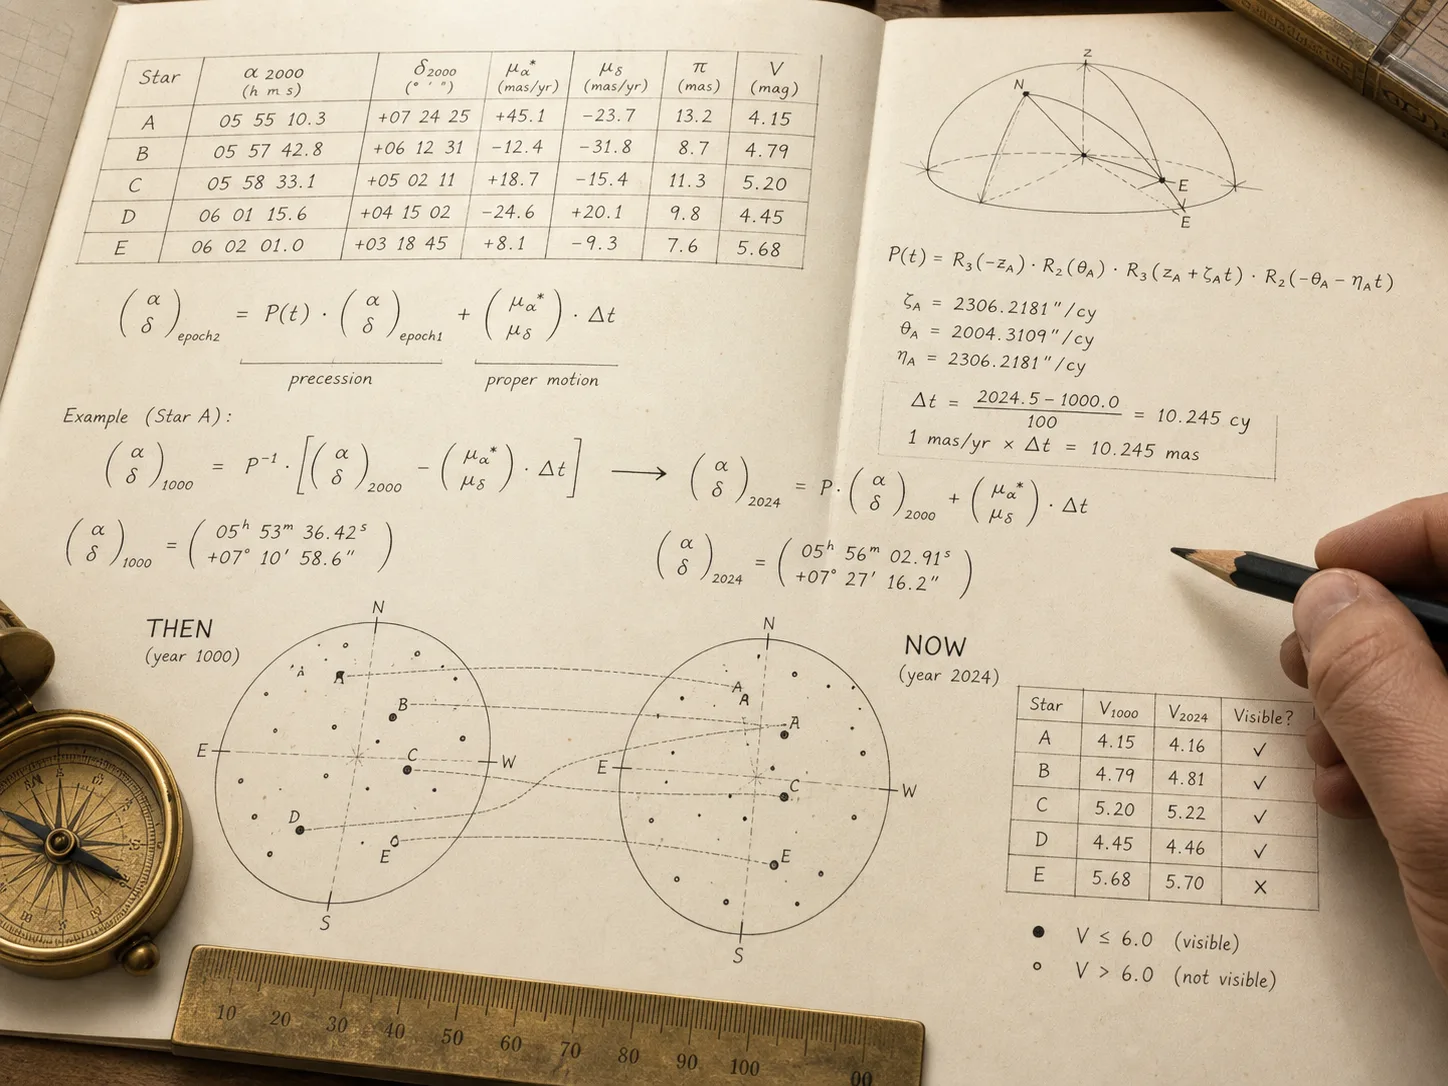 Star α 2000 (h m s) δ2000 (° ' ") μα* (mas/yr) μδ (mas/yr) π (mas) V (mag)
A 05 55 10.3 +07 24 25 +45.1 −23.7 13.2 4.15
B 05 57 42.8 +06 12 31 −12.4 −31.8 8.7 4.79
C 05 58 33.1 +05 02 11 +18.7 −15.4 11.3 5.20
D 06 01 15.6 +04 15 02 −24.6 +20.1 9.8 4.45
E 06 02 01.0 +03 18 45 +8.1 −9.3 7.6 5.68
(α δ)epoch2 = P(t) · (α δ)epoch1 + (μα* μδ) · Δt
precession proper motion
Example (Star A):
(α δ)1000 = P⁻¹ · [(α δ)2000 − (μα* μδ) · Δt] ⟶ (α δ)2024 = P · (α δ)2000 + (μα* μδ) · Δt
(α δ)1000 = (05h 53m 36.42s +07° 10' 58.6")
(α δ)2024 = (05h 56m 02.91s +07° 27' 16.2")
z
N
E
E
P(t) = R3(−zA) · R2(θA) · R3(zA + ζAt) · R2(−θA − ηAt)
ζA = 2306.2181"/cy
θA = 2004.3109"/cy
ηA = 2306.2181"/cy
Δt = 2024.5 − 1000.0 / 100 = 10.245 cy
1 mas/yr × Δt = 10.245 mas
THEN
(year 1000)
N
A
A
B
E
C
W
D
E
S
NOW
(year 2024)
N
A
A
A
E
C
W
E
S
Star V1000 V2024 Visible?
A 4.15 4.16 ✓
B 4.79 4.81 ✓
C 5.20 5.22 ✓
D 4.45 4.46 ✓
E 5.68 5.70 X
● V ≤ 6.0 (visible)
○ V > 6.0 (not visible)
10 20 30 40 50 60 70 80 90 100 00